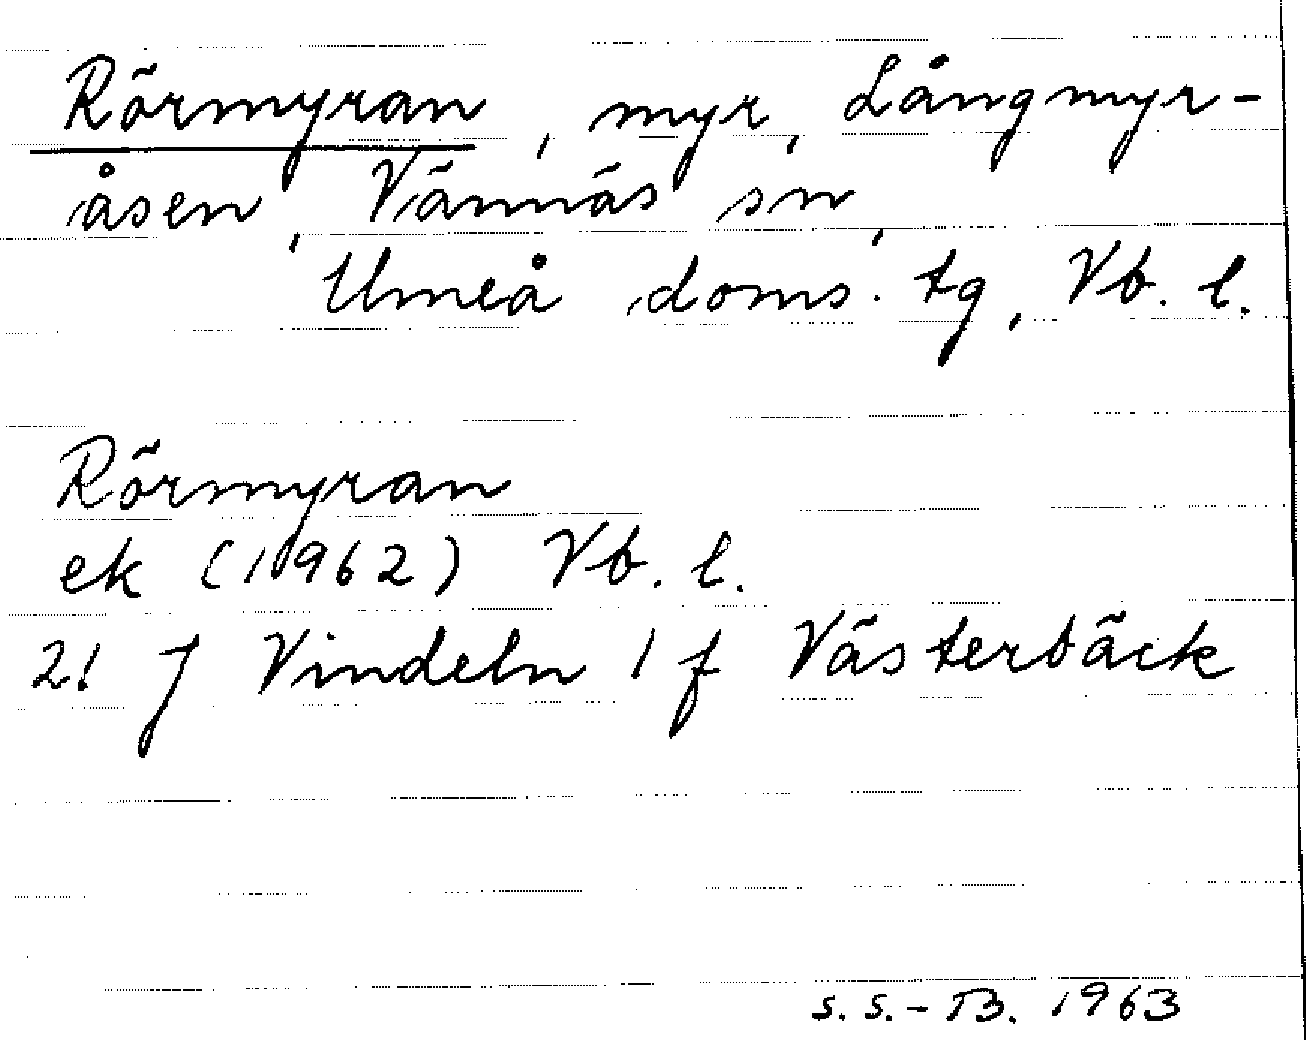 Rörmyran, myr, Långmyr-
åsen, Vännäs sn,
Umeå doms. tg, Vb. l.
Rörmyran
ek (1962) Vb. l.
21 J Vindeln 1 f Västerbäck
S. S. - B. 1963